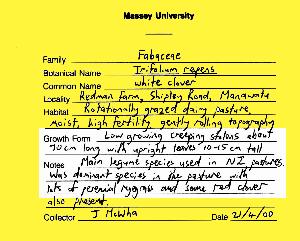 Massey University
Family Fabaceae
Botanical Name Trifolium repens
Common Name white clover
Locality Redman Farm, Shipley Road, Manawatu
Habitat Rotationally grazed dairy pasture
Moist, high fertility gently rolling topography
Growth Form Low growing creeping stolons about
70cm long with upright leaves 10-15 cm tall
Notes Main legume species used in NZ pastures.
Was dominant species in the pasture with
lots of perennial ryegrass and some red clover
also present.
Collector J McWha Date 21/4/00